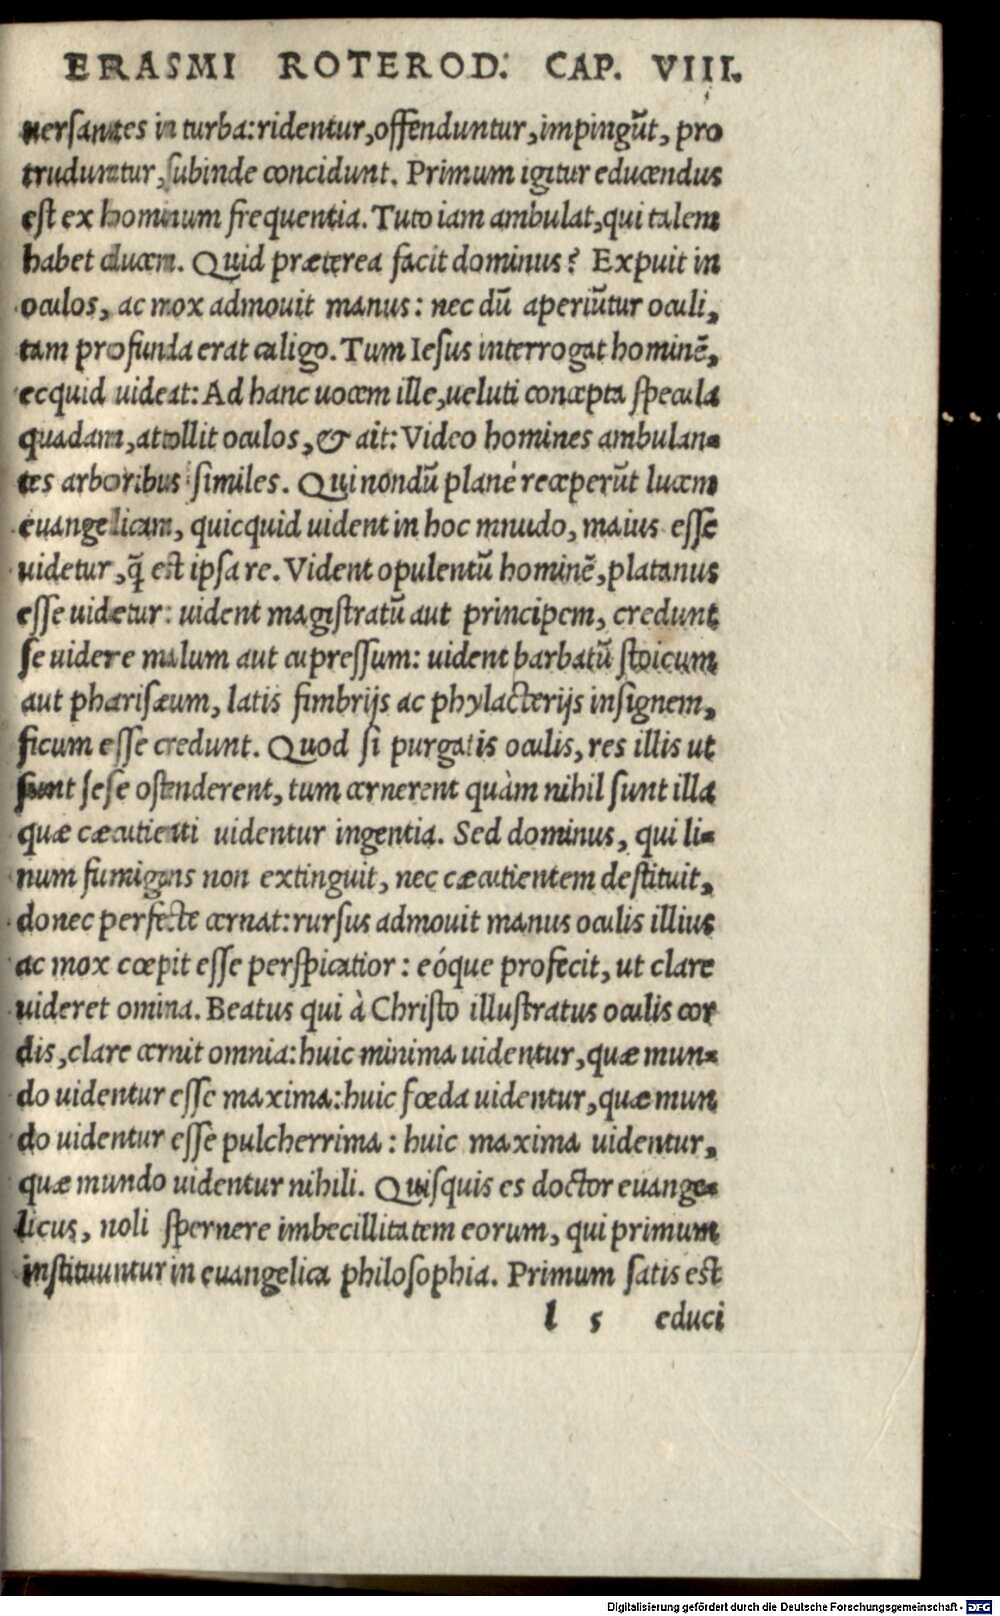 ERASMI ROTEROD. CAP. VIII.
uersantes in turba: ridentur, offenduntur, impingũt, pro
truduntur, subinde concidunt. Primum igitur educendus
est ex hominum frequentia. Tuto iam ambulat, qui talem
habet ducem. Quid præterea facit dominus? Expuit in
oculos, ac mox admouit manus: nec dũ aperiũtur oculi,
tam profunda erat caligo. Tum Iesus interrogat hominẽ,
ecquid uideat: Ad hanc uocem ille, ueluti concepta specula
quadam, attollit oculos, & ait: Video homines ambulan=
tes arboribus similes. Qui nondũ planè receperũt lucem
euangelicam, quicquid uident in hoc mnudo, maius esse
uidetur, q̃ est ipsa re. Vident opulentũ hominẽ, platanus
esse uidetur: uident magistratũ aut principem, credunt
se uidere malum aut cupressum: uident barbatũ stoicum
aut pharisæum, latis fimbrijs ac phylacterijs insignem,
ficum esse credunt. Quod si purgatis oculis, res illis ut
sunt sese ostenderent, tum cernerent quàm nihil sunt illa
quæ cæcutienti uidentur ingentia. Sed dominus, qui li=
num fumigans non extinguit, nec cæcutientem destituit,
donec perfecte cernat: rursus admouit manus oculis illius
ac mox cœpit esse perspicatior: eóque profecit, ut clare
uideret omina. Beatus qui à Christo illustratus oculis cor
dis, clare cernit omnia: huic minima uidentur, quæ mun=
do uidentur esse maxima: huic fœda uidentur, quæ mun
do uidentur esse pulcherrima: huic maxima uidentur,
quæ mundo uidentur nihili. Quisquis es doctor euange=
licus, noli spernere imbecillitatem eorum, qui primum
instituuntur in euangelica philosophia. Primum satis est
l s educi
Digitalisierung gefördert durch die Deutsche Forschungsgemeinschaft - DFG